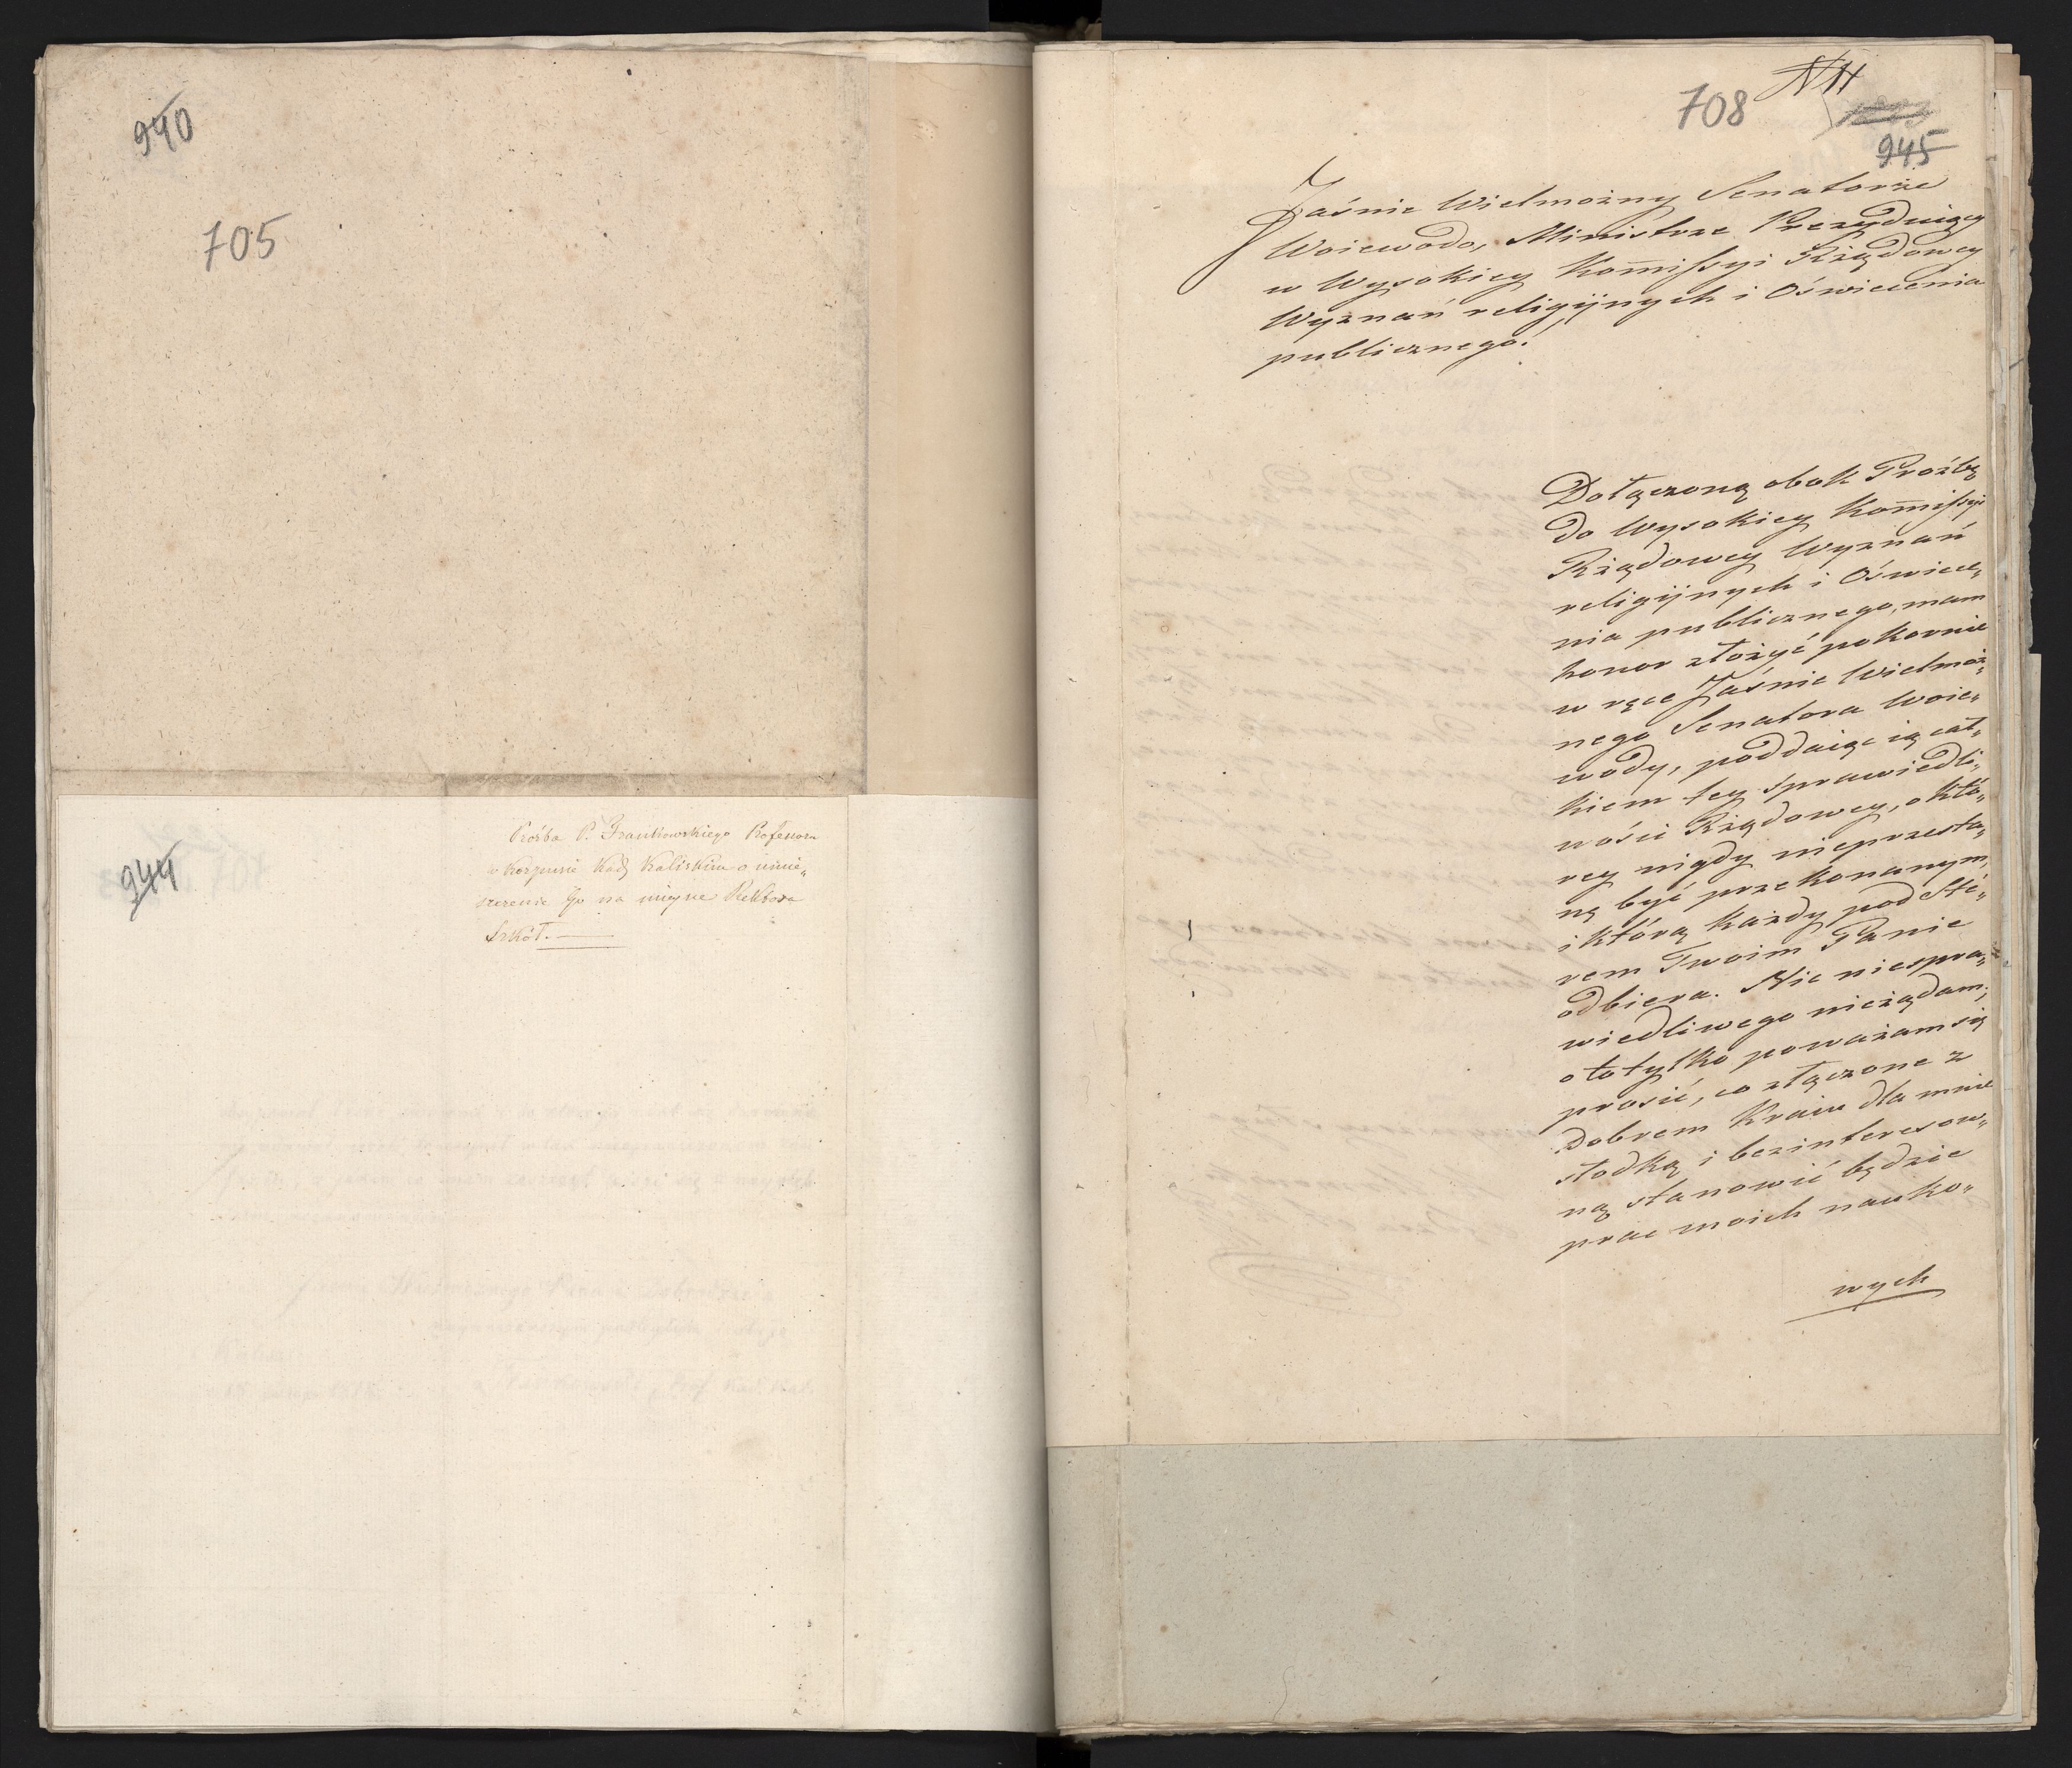 940
705
944
Prośba P. Frankowskiego Profesora
w Korpusie Kad. Kaliskim o umie„
szczenie Go na mieysce Rektora
Szkół.
708
945
Jaśnie Wielmożny Senatorze
Woiewodo, Ministrze Prezyduiący
w Wysokiey Kom̄issyi Rządowey
Wyznań religijnych i Oświecenia
publicznego.
Dołączoną obok Proźbę
do Wysokiey Kom̄issyi
Rządowey Wyznań
religijnych i Oświece„
nia publicznego, mam
honor złożyć pokornie
w ręce Jaśnie Wielmoż„
nego Senatora Woie„
wody, poddaiąc ią cał„
kiem tey sprawiedli„
wości Rządowey, o któ„
rey nigdy nieprzesta„
nę być przekonanym,
i którą każdy pod Sté„
rem Twoim Panie
odbiera. Nic niespra„
wiedliwego nieżądam;
o to tylko poważam się
prosić, co złączone z
dobrem Kraiu dla mnie
słodką i bezinteresow„
ną stanowić będzie
prac moich nauko„
wych